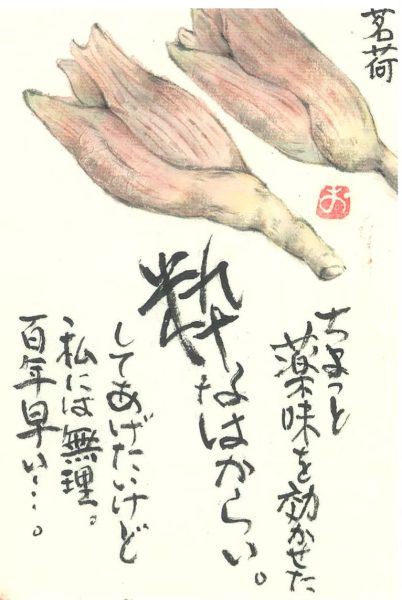 茗荷
お
ちょっと
薬味を効かせた
粋なはからい。
してあげたいけど
私には無理。
百年早い…。